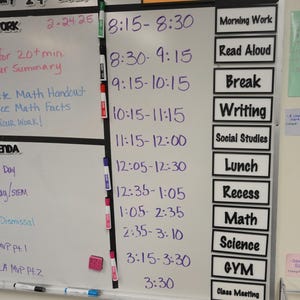 WORK
2-24-25
for 20+ min.
Summary
Math Handout
Math Facts
YOUR WORK!
ENDA
Day
Day/STEM
Dismissal
MVP Pt. 1
LA MVP Pt. 2
8:15- 8:30 Morning Work
8:30- 9:15 Read Aloud
9:15-10:15 Break
10:15-11:15 Writing
11:15-12:00 Social Studies
12:05-12:30 Lunch
12:35-1:05 Recess
1:05-2:35 Math
2:35-3:10 Science
3:15-3:30 GYM
3:30 Class Meeting